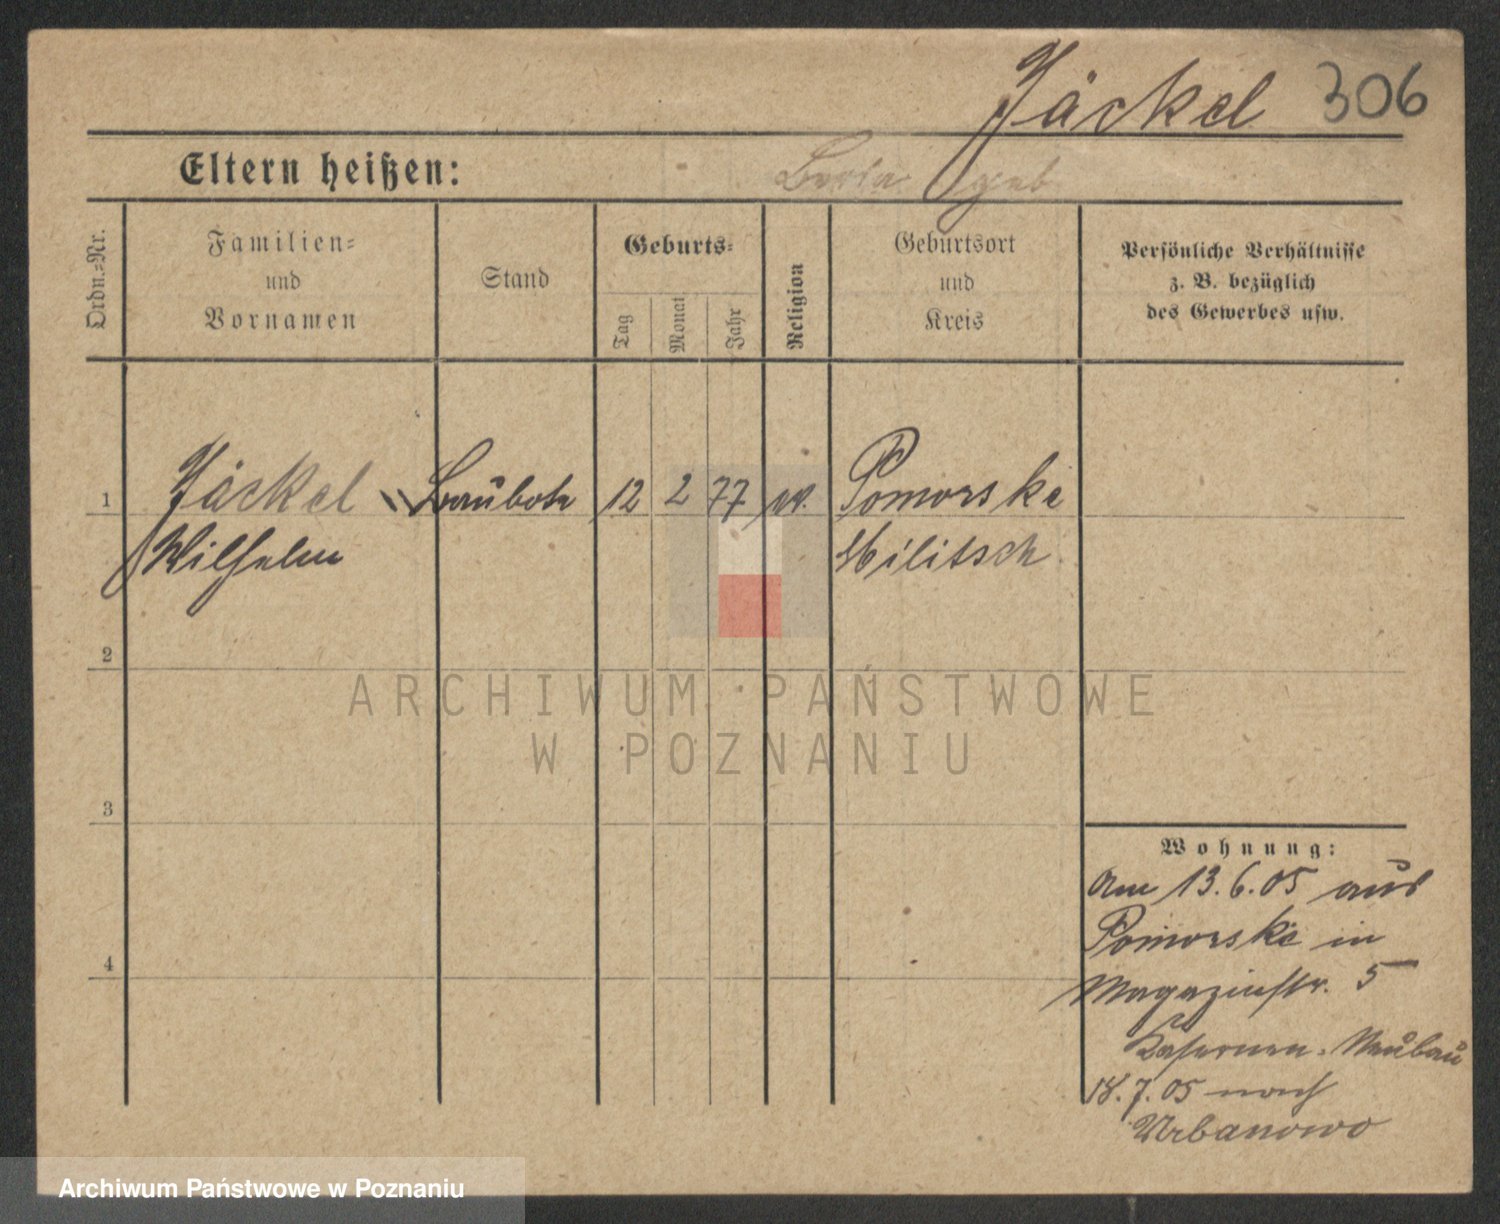 Jäckel 306
Eltern heißen:
geb
Ordn.=Nr.
Familien=
und
Vornamen
Stand
Geburts=
Tag
Monat
Jahr
Religion
Geburtsort
und
Kreis
Persönliche Verhältnisse
z. B. bezüglich
des Gewerbes usw.
1 Jäckel Baubote 12 2 77 ev. Pomorske
Wilhelm Militsch
2
ARCHIWUM PAŃSTWOWE
W POZNANIU
3
4
Wohnung:
Am 13.6.05 aus
Pomorske in
Magazinstr. 5
Kasernen-Neubau
18.7.05 nach
Urbanowo
Archiwum Państwowe w Poznaniu